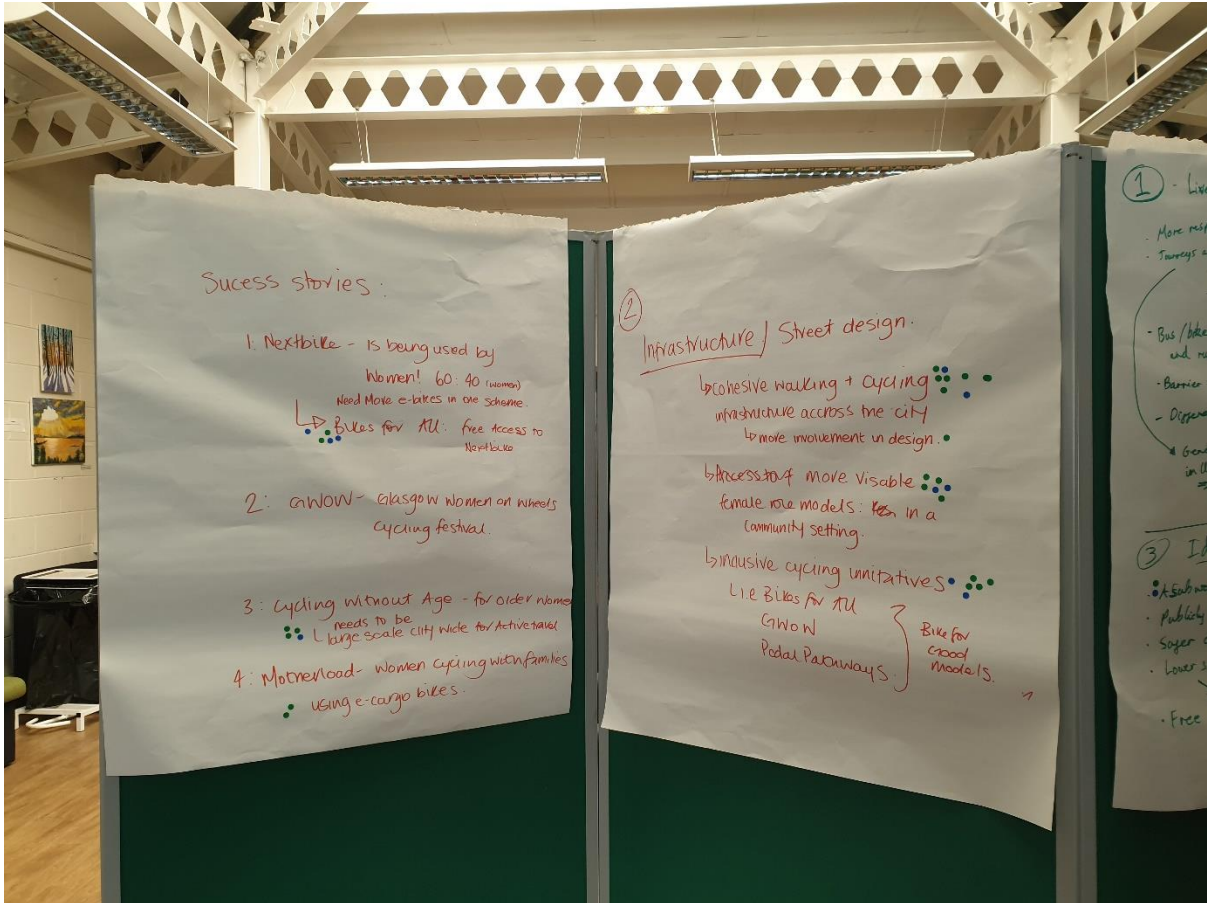 Sucess stories:
1: Nextbike - is being used by
Women! 60:40 (women)
Need More e-bikes in one scheme.
↳ Bikes for All: free Access to
Nextbike
2: GWOW - Glasgow Women on wheels
cycling festival.
3: Cycling Without Age - for older women
needs to be
large scale city wide for Active travel
4: Motherload - Women cycling with families
using e-cargo bikes.
②
Infrastructure / Street design.
↳ cohesive walking + cycling
infrastructure accross the city
↳ more involvement in design.
↳ Access to more visable
female role models: in a
community setting.
↳ inclusive cycling innitatives
L i.e Bikes for All
GWOW
Pedal Pathways.
Bike for
Good
models.
① - Live
. More resp
. Journeys a
- Bus/bike
and
- Barrier
-
Gen
in
③ Id
.
. Publicly
. Safer
. Lower s
. Free